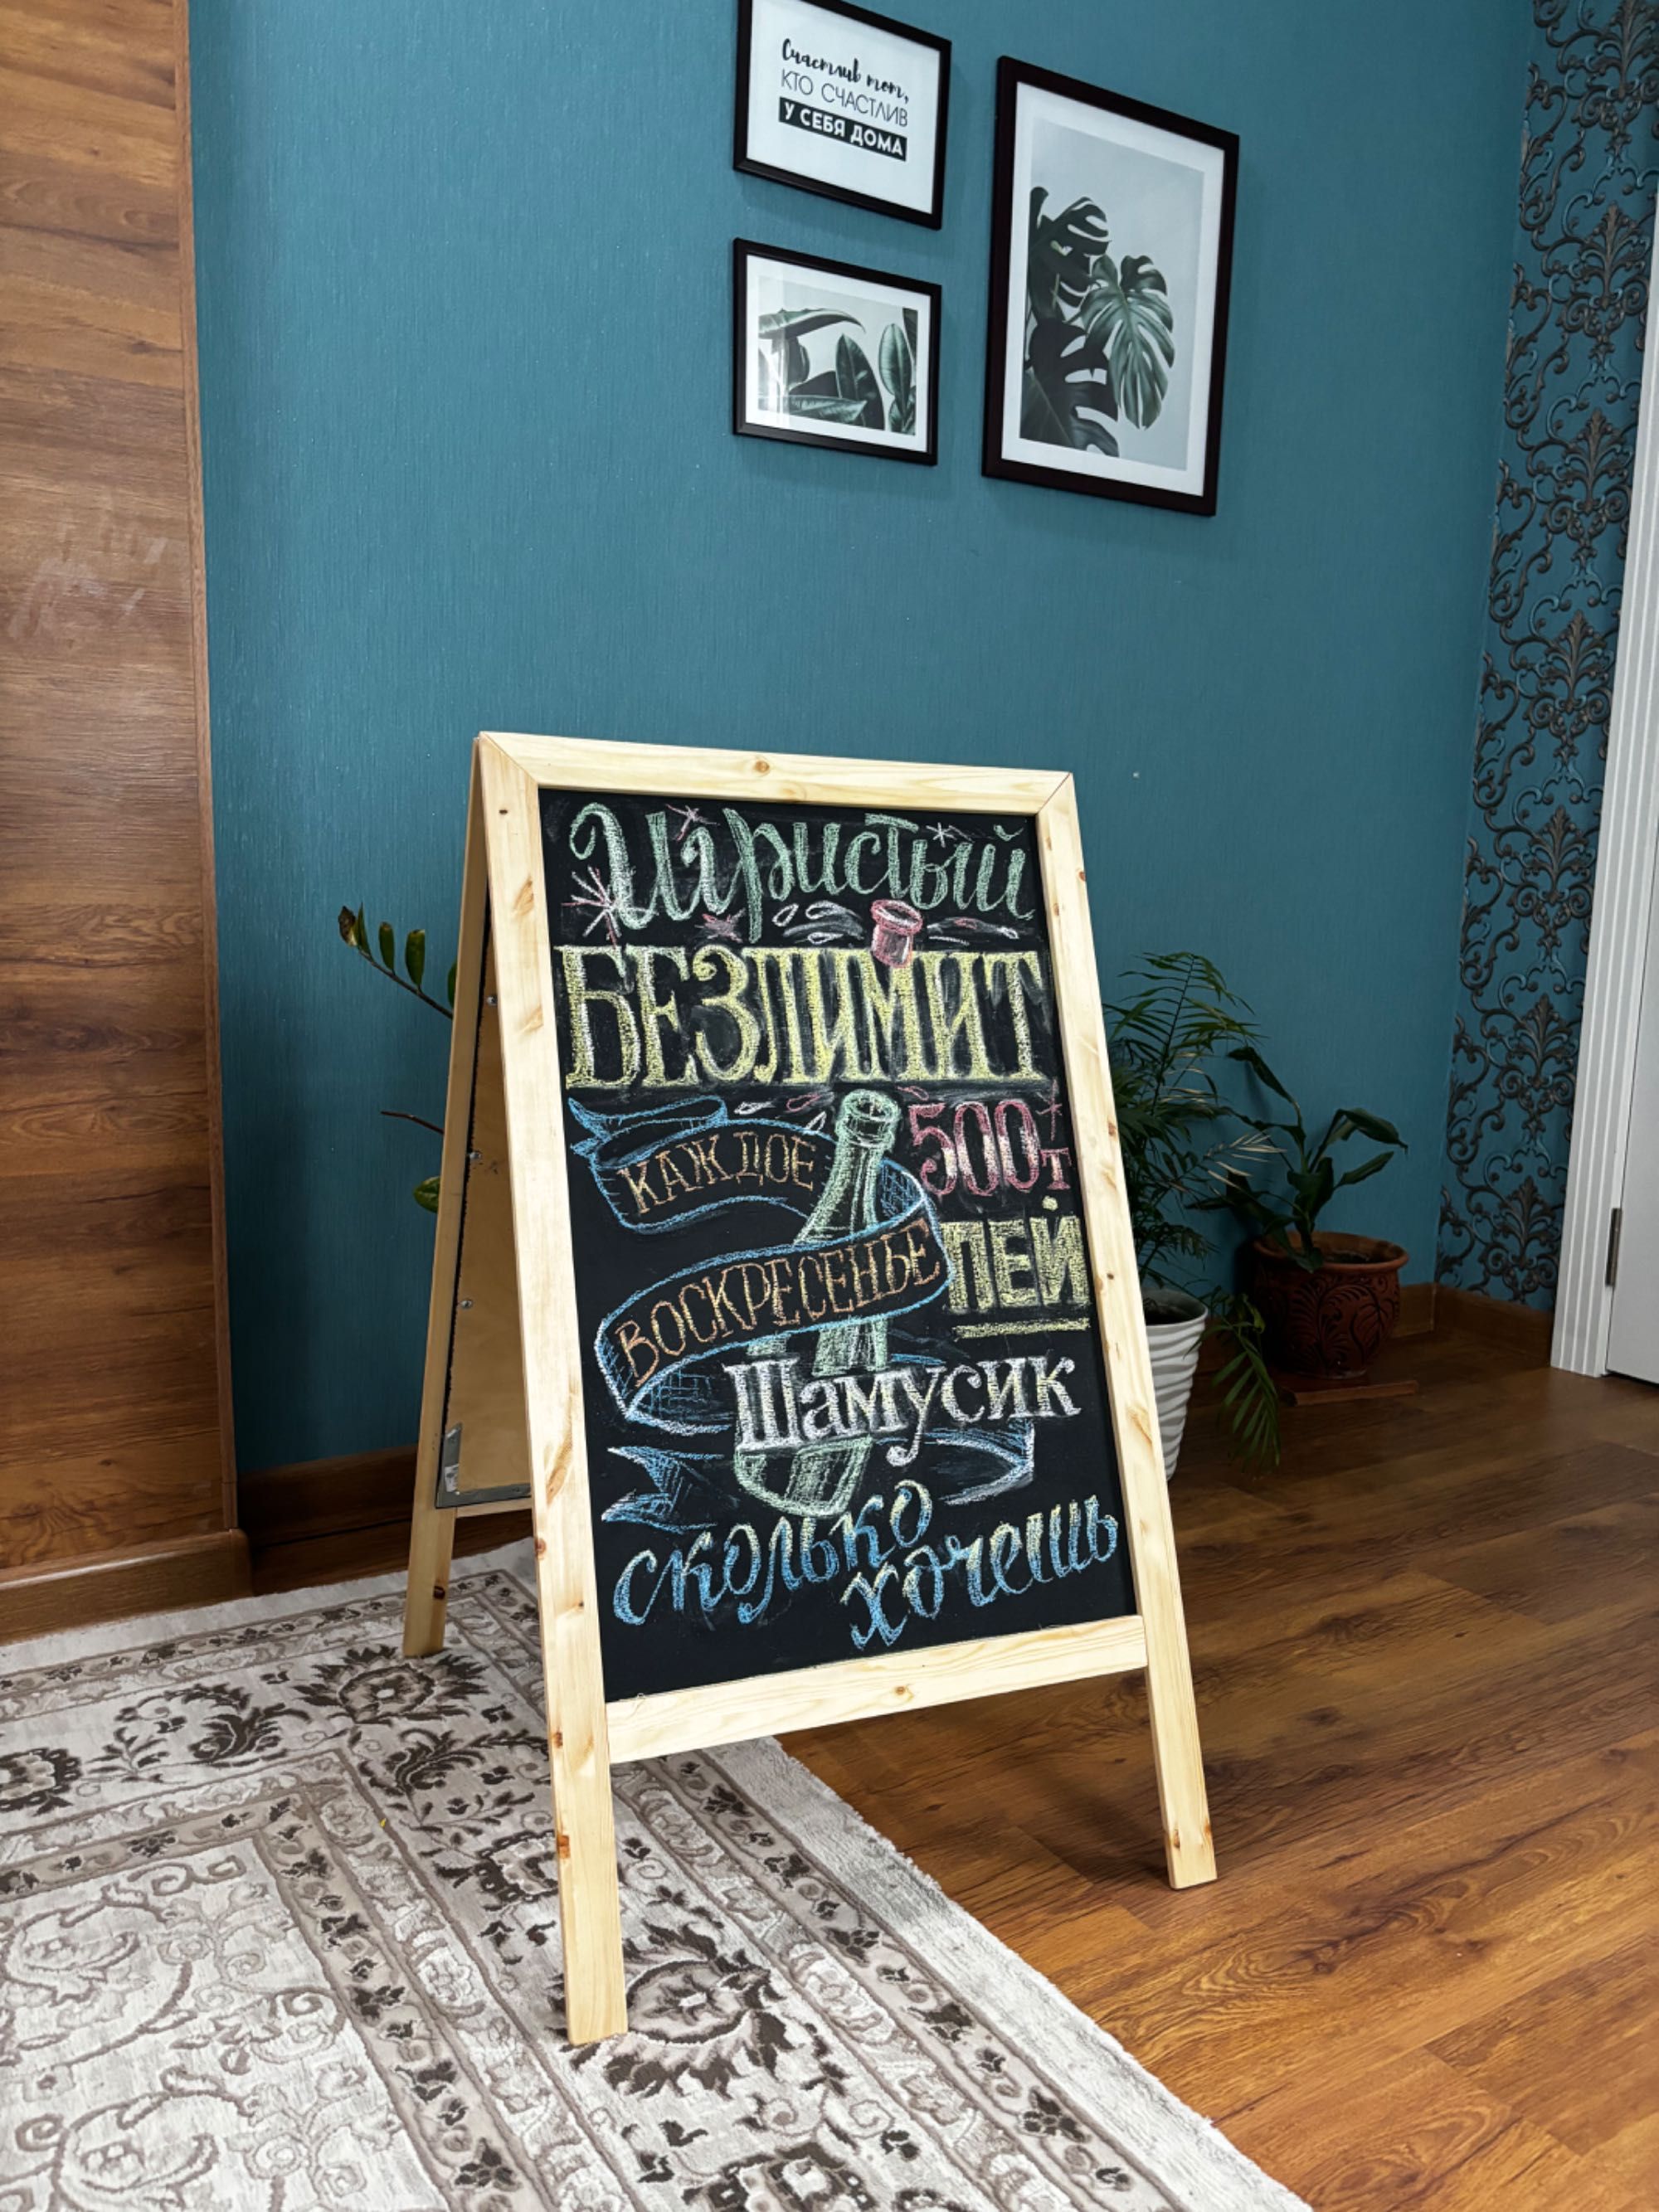 Счастлив тот,
КТО СЧАСТЛИВ
У СЕБЯ ДОМА
Игристый
БЕЗЛИМИТ
КАЖДОЕ
500т
ВОСКРЕСЕНЬЕ
ПЕЙ
Шамусик
сколько
хочешь